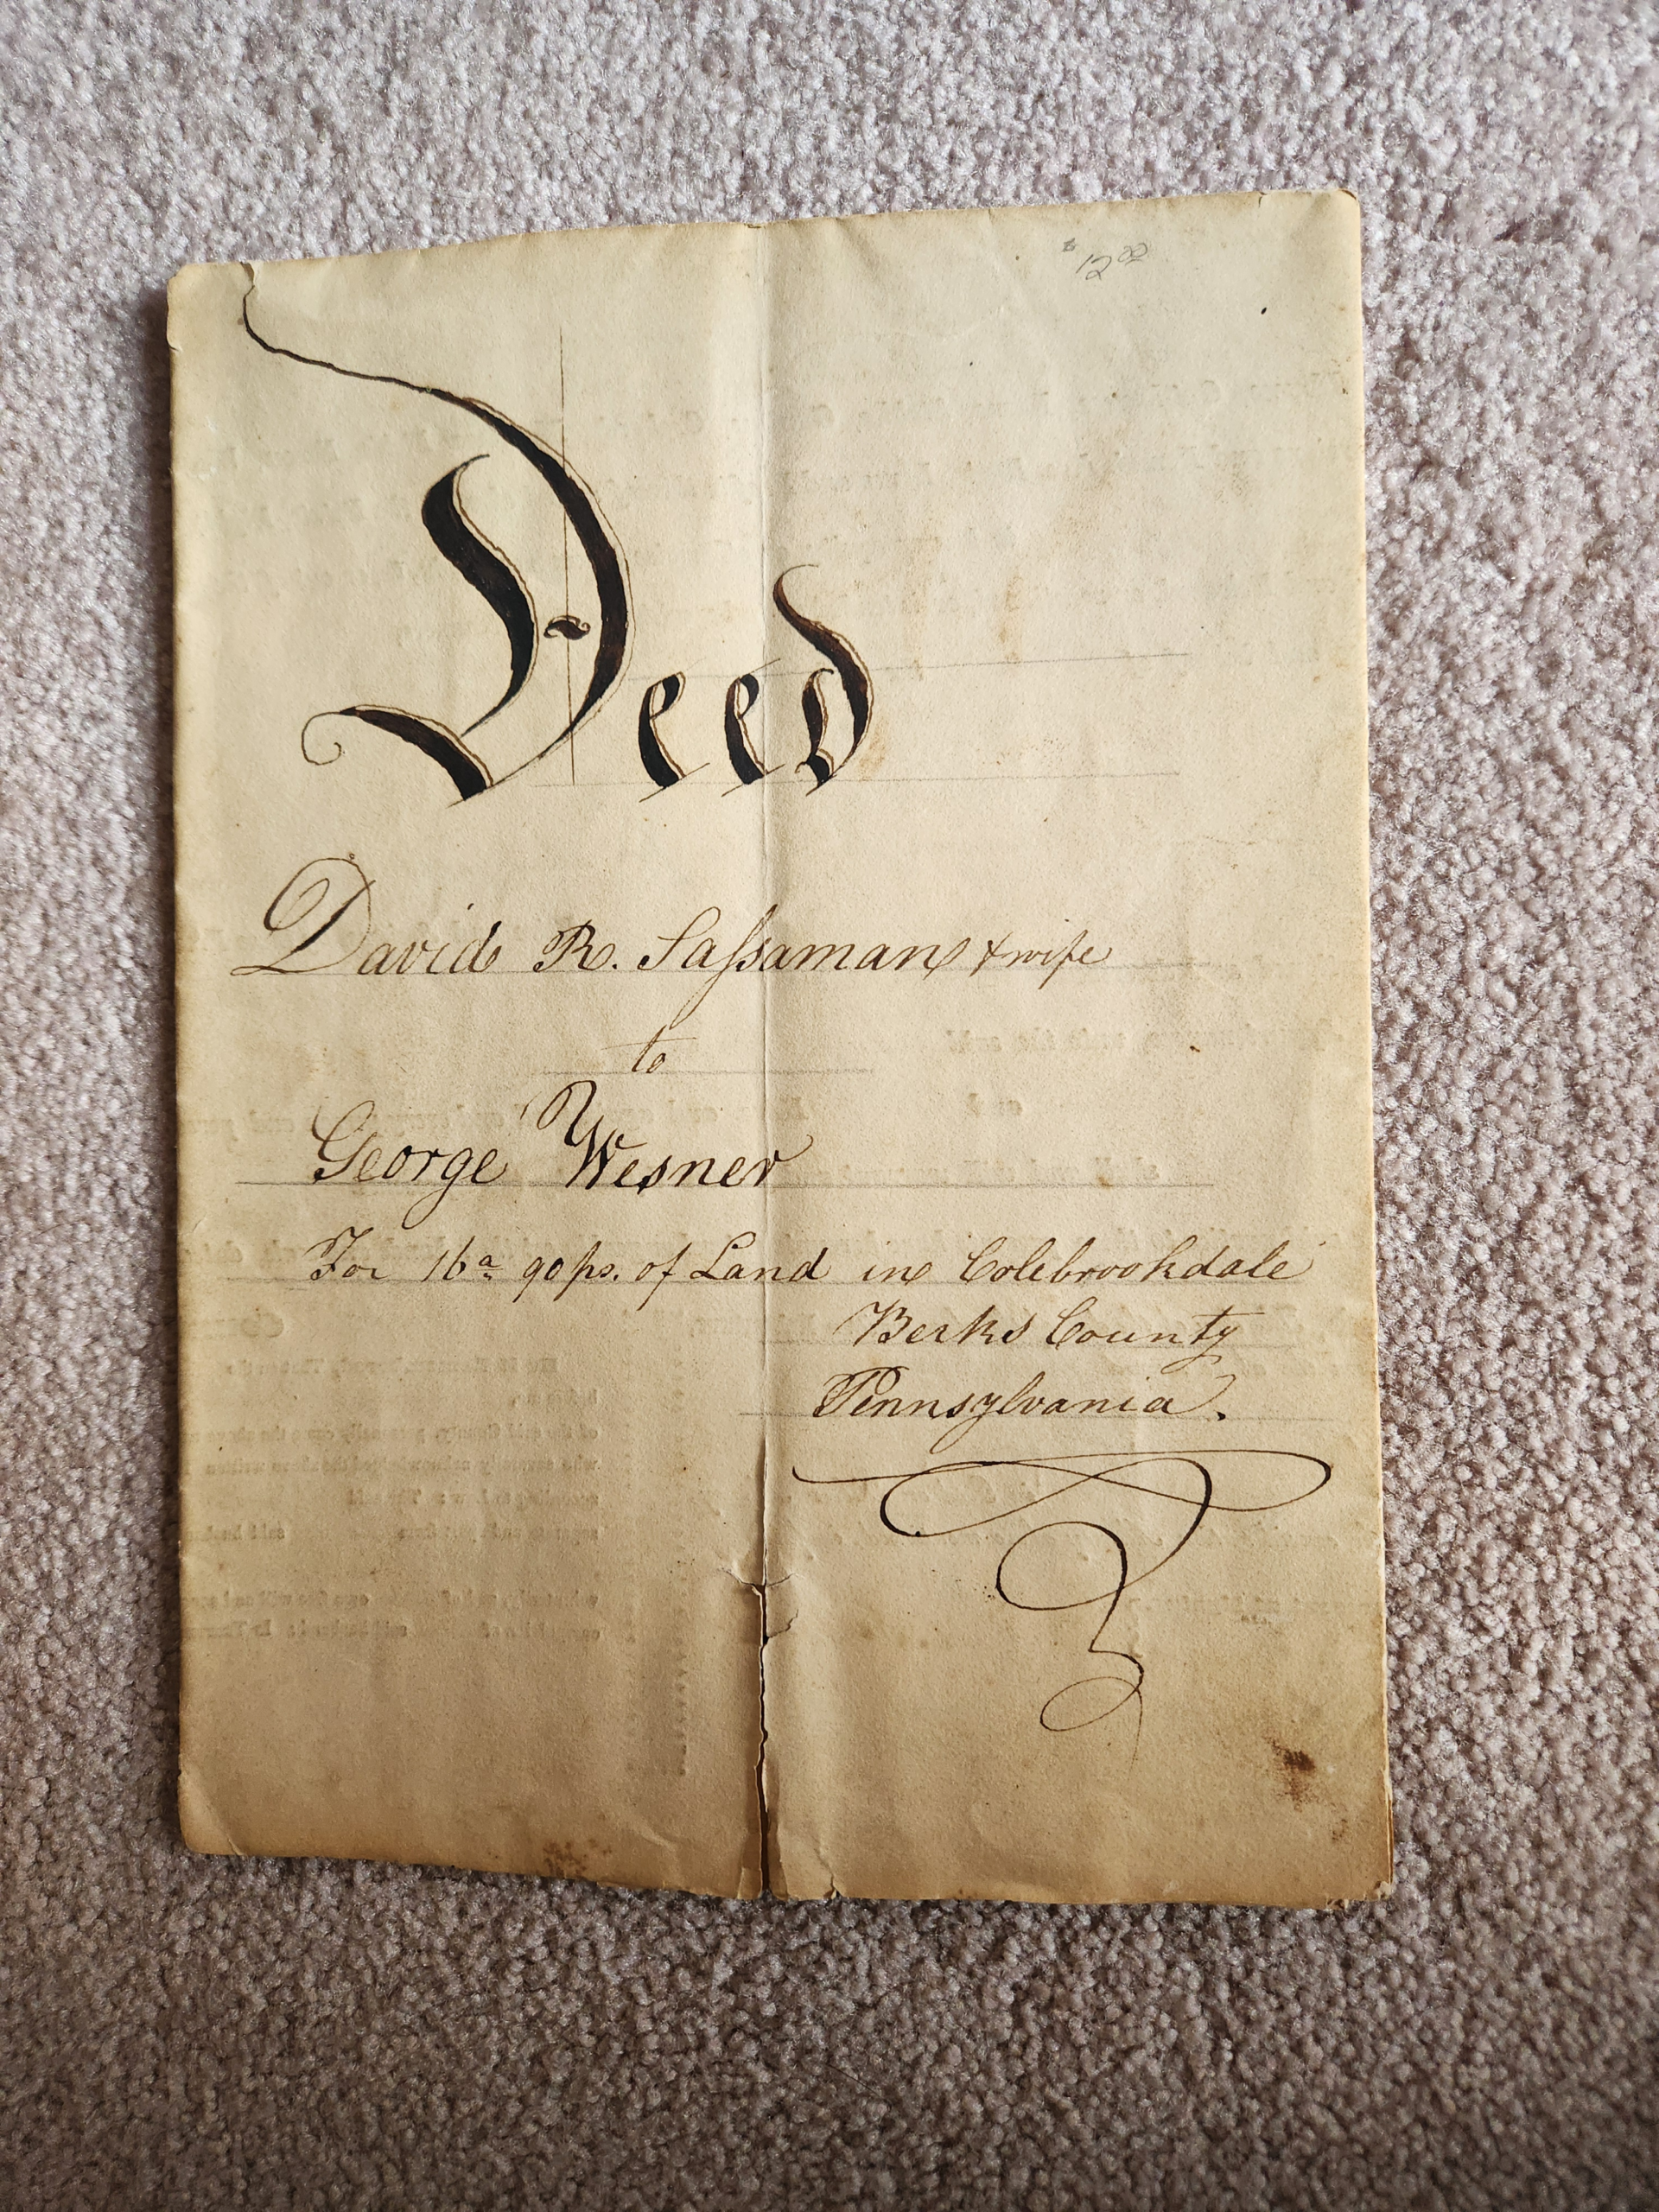 $12 00
Deed
David R. Saſsaman & wife
to
George Wesner
For 16a 90 ps. of Land in Colebrookdale
Berks County
Pennsylvania.